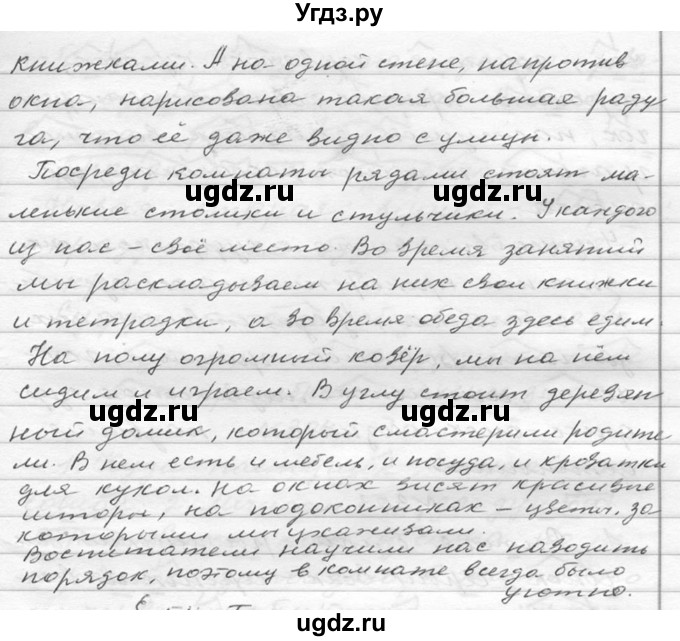 Угдз.ру
книжками. А на одной стене, напротив
окна, нарисована такая большая раду
га, что её даже видно с улицы.
Посреди комнаты рядами стоят ма-
ugdz.ru ugdz.ru
ленькие столики и стульчики. У каждого
из нас – своё место. Во время занятий
мы раскладываем на них свои книжки
и тетрадки, а во время обеда здесь едим.
На полу огромный ковёр, мы на нём
сидим и играем. В углу стоит деревян
ugdz.ru ugdz.ru
ный домик, который смастерили родите
ли. В нем есть и мебель, и посуда, и кроватки
для кукол. На окнах висят красивые
шторы, на подоконниках – цветы, за
которыми мы ухаживали.
Воспитатели научили нас наводить
порядок, поэтому в комнате всегда было
уютно.
ugdz.ru ugdz.ru